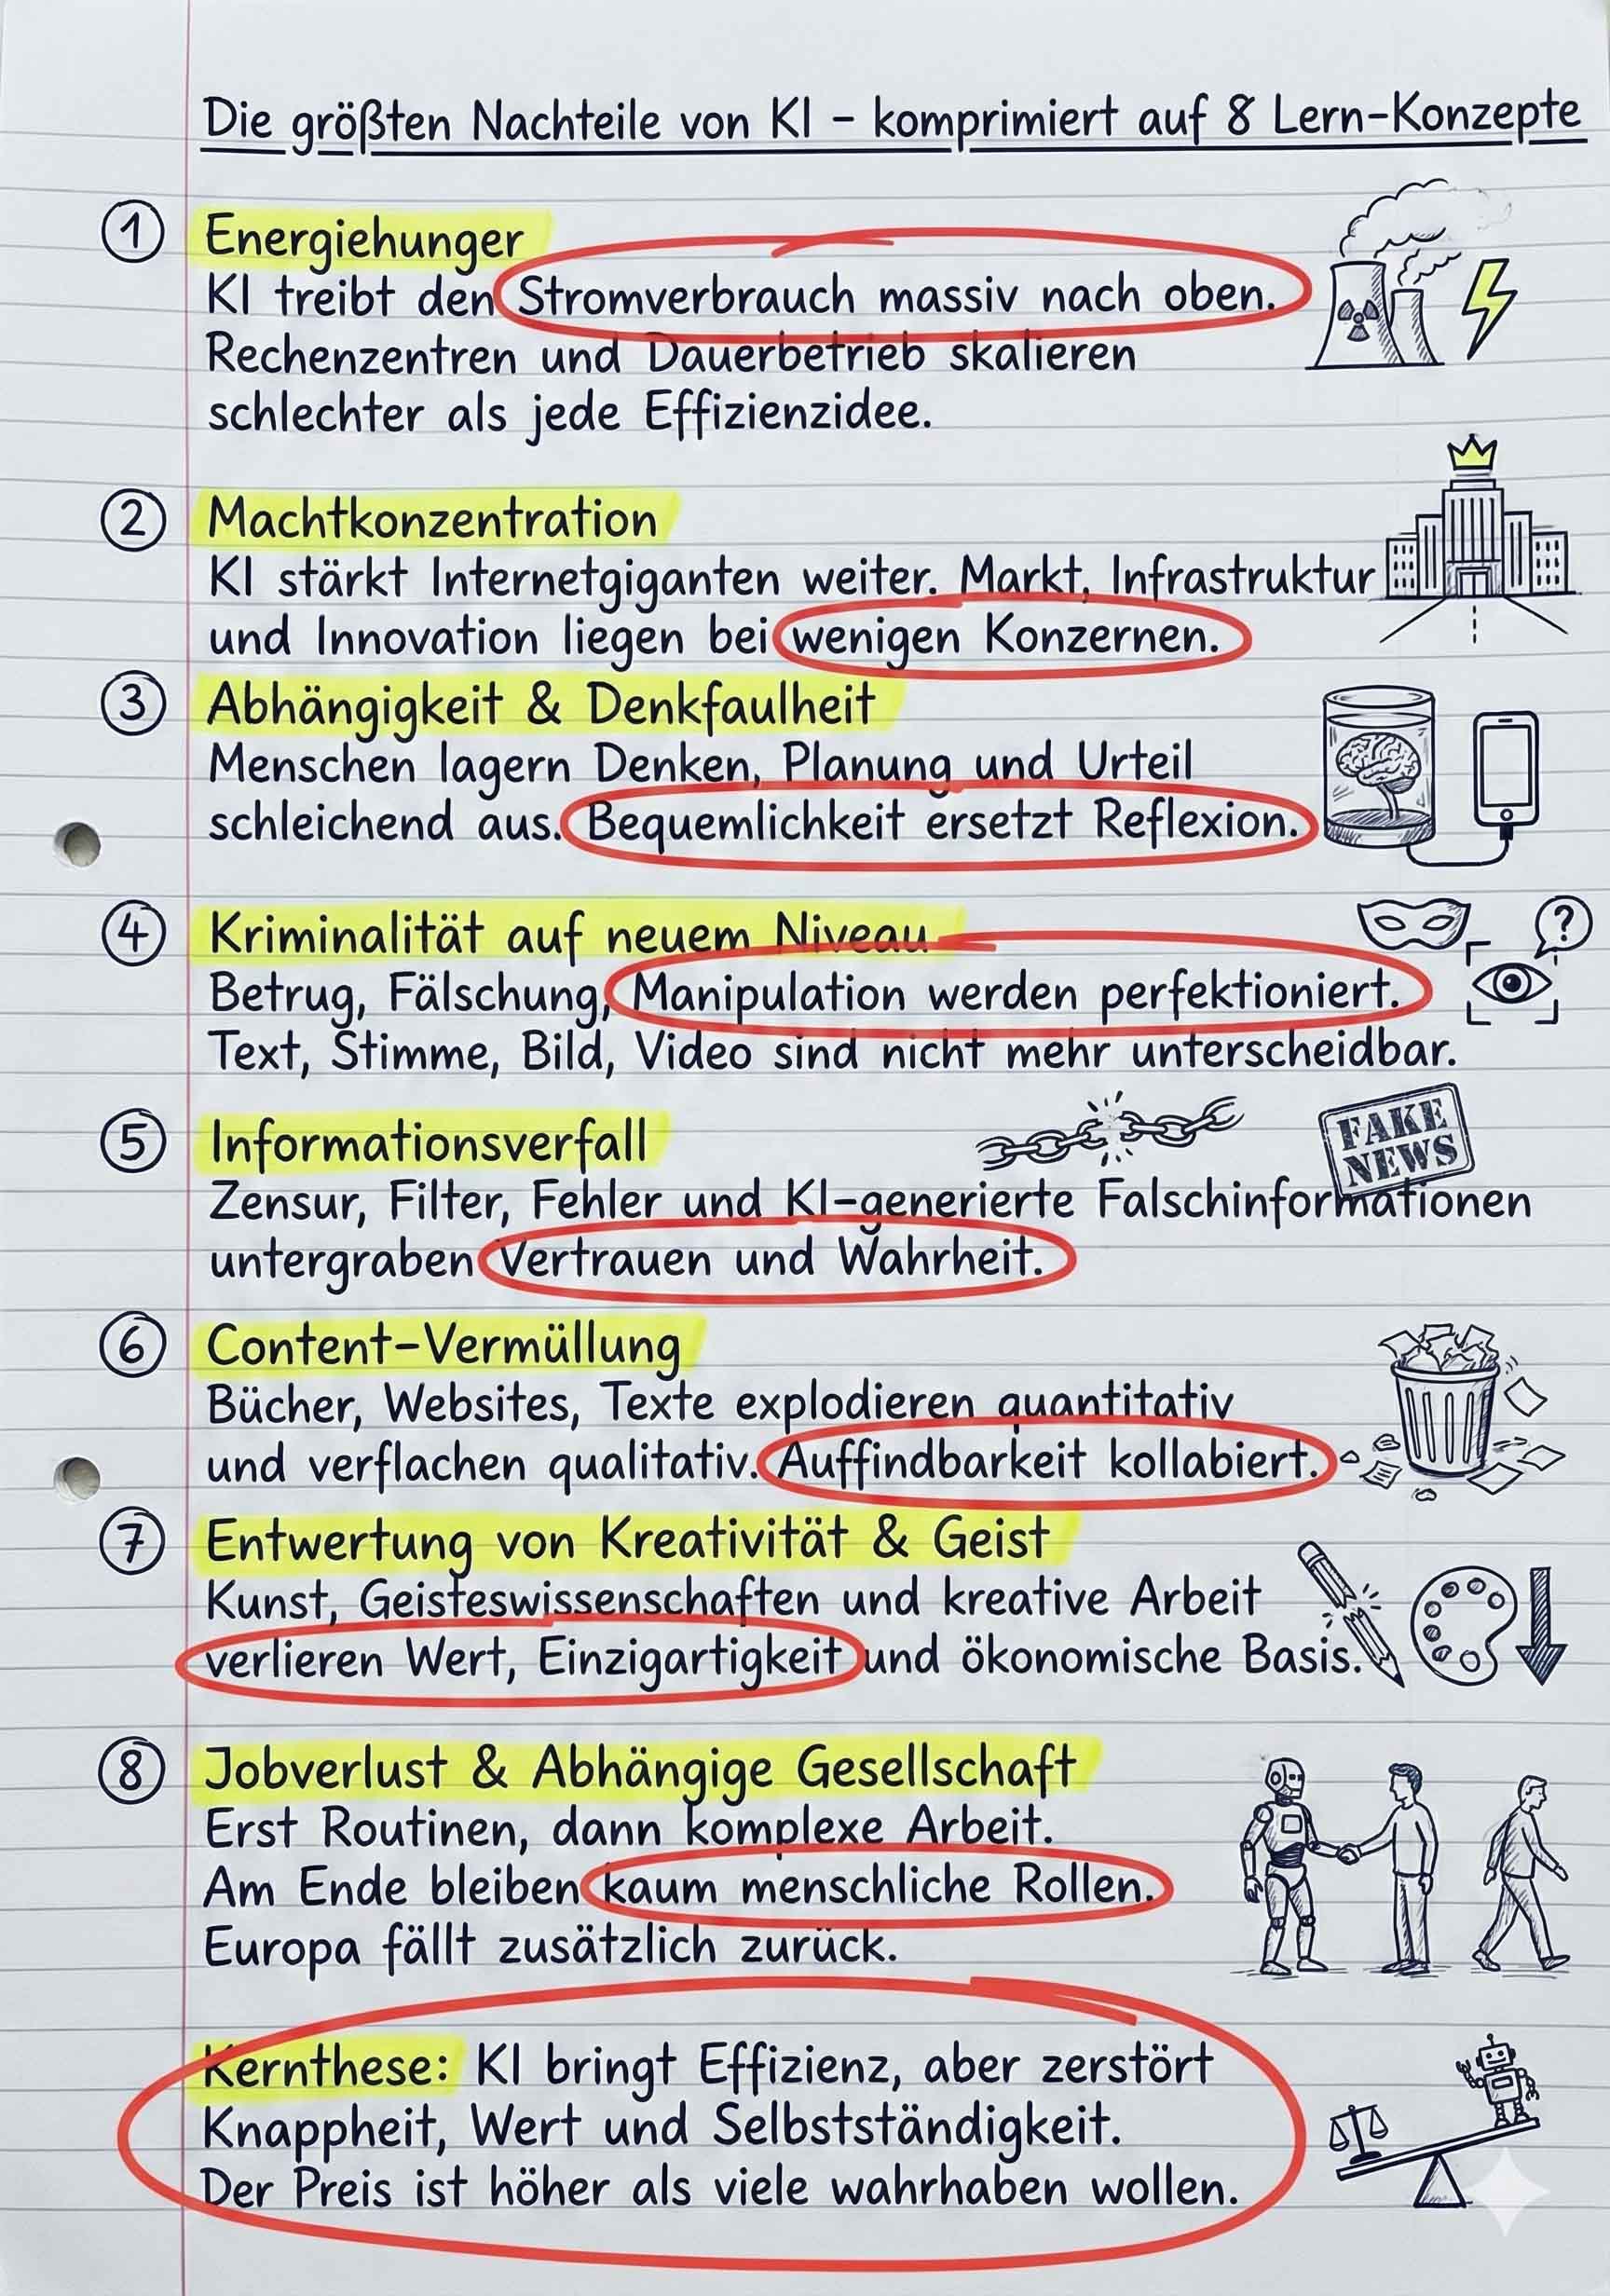 Die größten Nachteile von KI – komprimiert auf 8 Lern-Konzepte
1 Energiehunger
KI treibt den Stromverbrauch massiv nach oben.
Rechenzentren und Dauerbetrieb skalieren
schlechter als jede Effizienzidee.
2 Machtkonzentration
KI stärkt Internetgiganten weiter. Markt, Infrastruktur
und Innovation liegen bei wenigen Konzernen.
3 Abhängigkeit & Denkfaulheit
Menschen lagern Denken, Planung und Urteil
schleichend aus. Bequemlichkeit ersetzt Reflexion.
4 Kriminalität auf neuem Niveau
?
Betrug, Fälschung, Manipulation werden perfektioniert.
Text, Stimme, Bild, Video sind nicht mehr unterscheidbar.
5 Informationsverfall
FAKE
NEWS
Zensur, Filter, Fehler und KI-generierte Falschinformationen
untergraben Vertrauen und Wahrheit.
6 Content-Vermüllung
Bücher, Websites, Texte explodieren quantitativ
und verflachen qualitativ. Auffindbarkeit kollabiert.
7 Entwertung von Kreativität & Geist
Kunst, Geisteswissenschaften und kreative Arbeit
verlieren Wert, Einzigartigkeit und ökonomische Basis.
8 Jobverlust & Abhängige Gesellschaft
Erst Routinen, dann komplexe Arbeit.
Am Ende bleiben kaum menschliche Rollen.
Europa fällt zusätzlich zurück.
Kernthese: KI bringt Effizienz, aber zerstört
Knappheit, Wert und Selbstständigkeit.
Der Preis ist höher als viele wahrhaben wollen.